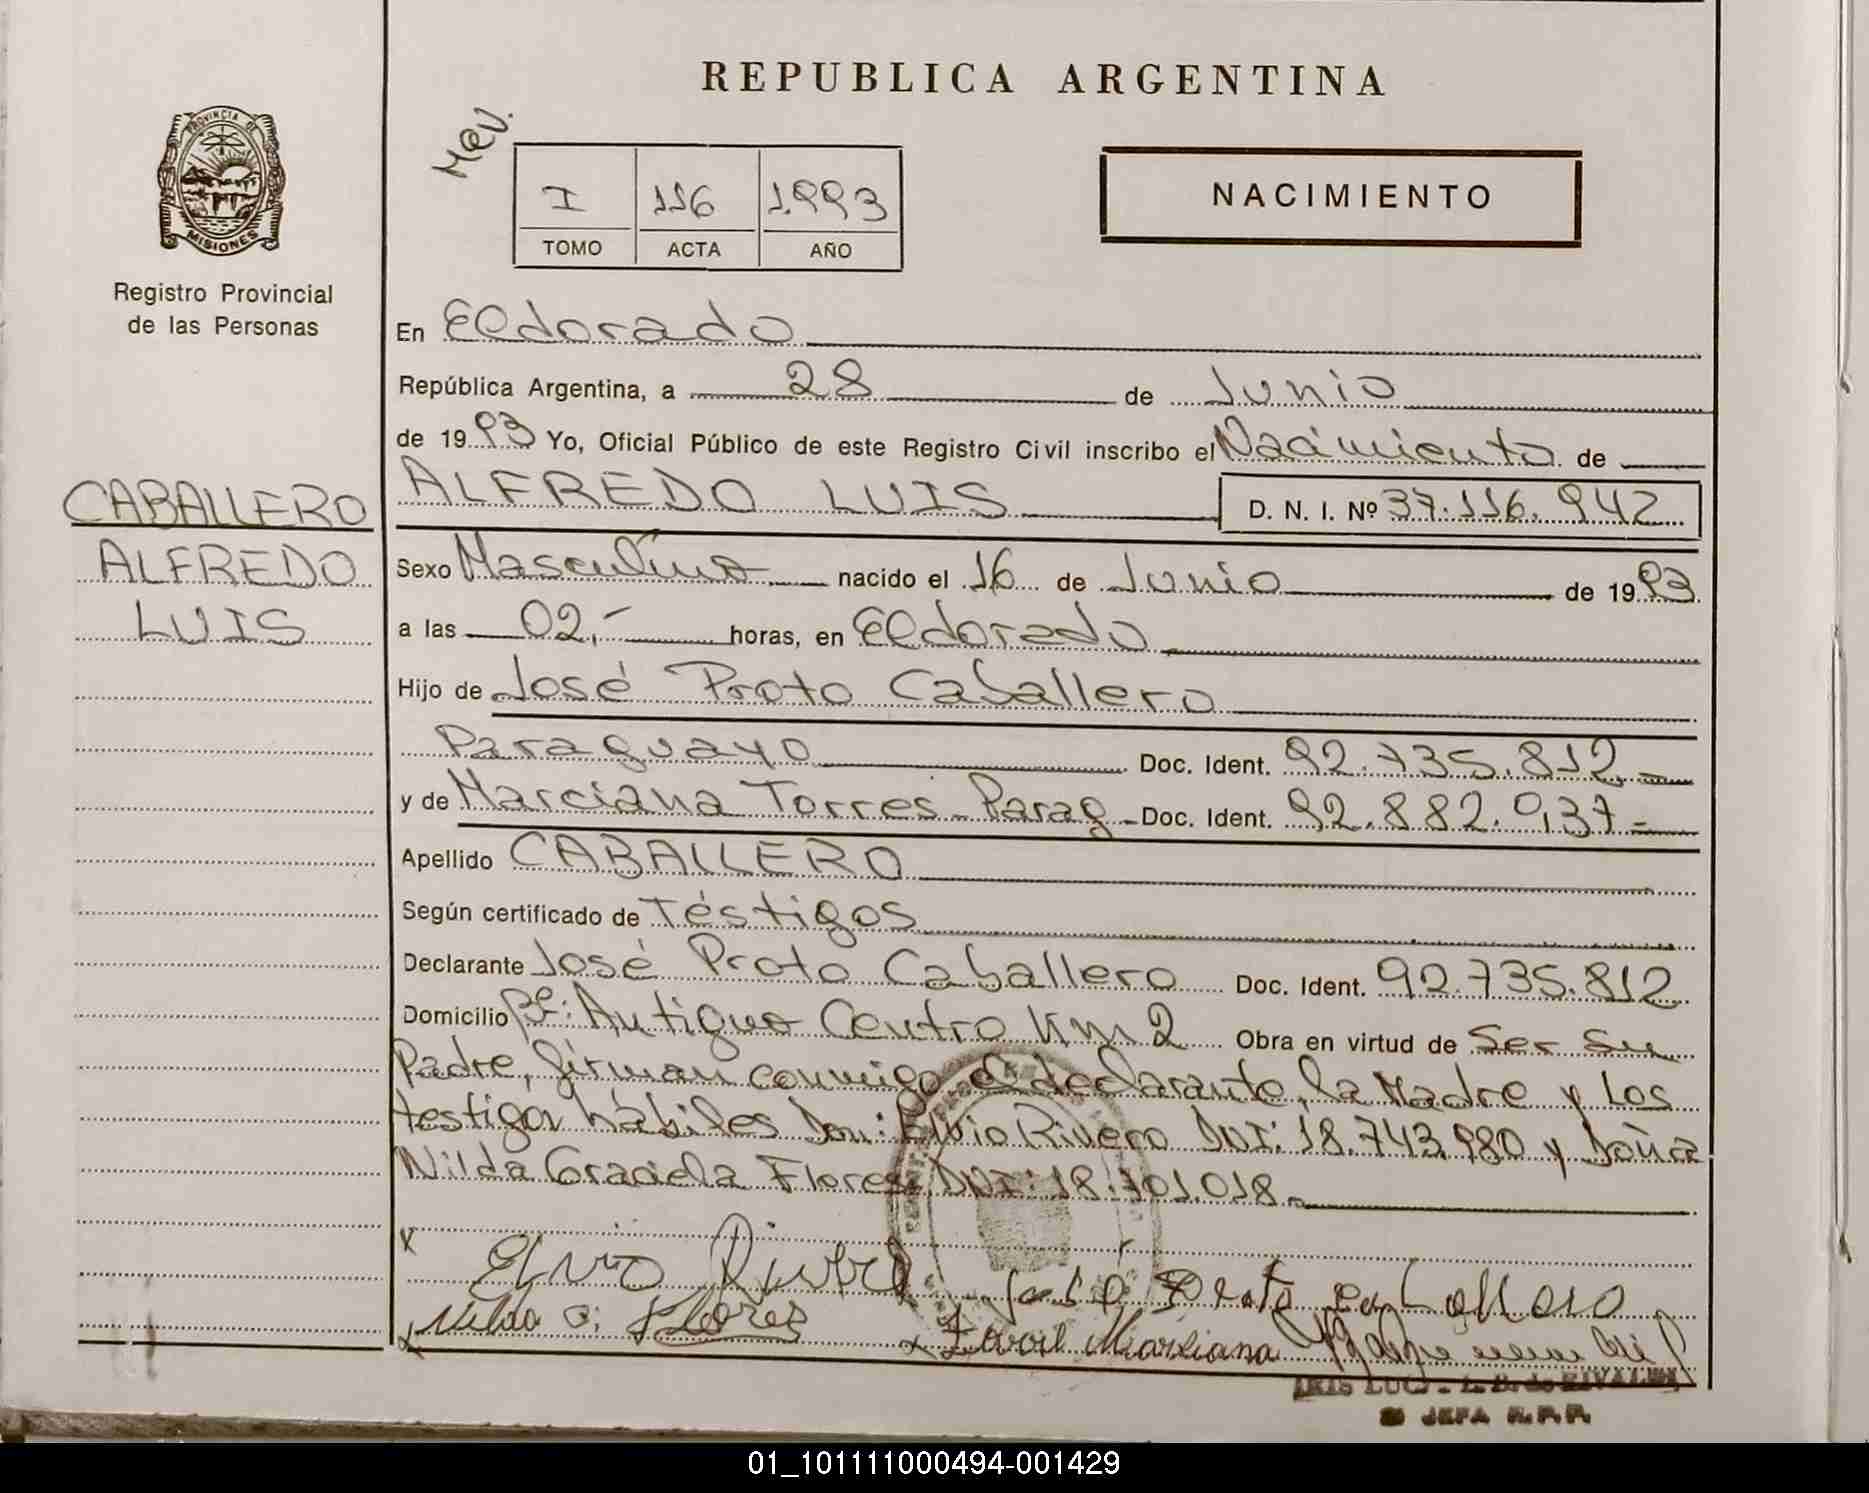 REPUBLICA ARGENTINA
PROVINCIA DE
MISIONES
Registro Provincial
de las Personas
I 116 1993
TOMO ACTA AÑO
NACIMIENTO
En Eldorado
República Argentina, a 28 de Junio
de 1993 Yo, Oficial Público de este Registro Civil inscribo el Nacimiento de
CABALLERO
ALFREDO
LUIS
ALFREDO LUIS D. N. I. Nº 37.116.942
Sexo Masculino nacido el 16 de Junio de 1993
a las 02,- horas, en Eldorado
Hijo de José Proto Caballero
Paraguayo Doc. Ident. 92.735.812
y de Marciana Torres - Parag - Doc. Ident. 92.882.937-
Apellido CABALLERO
Según certificado de Téstigos
Declarante José Proto Caballero Doc. Ident. 92.735.812
Domicilio Bº: Antiguo Centro Km 2 Obra en virtud de Ser Su
Padre, firman conmigo el declarante, la Madre y Los
testigos hábiles Don: Elvio Rivero DNI: 18.743.980 y Doña
Nilda Graciela Flores DNI: 18.701.018-
x Elvio Rivero José Proto Caballero
x Nilda G. Flores x Marciana
JEFA R.P.P.
01_101111000494-001429